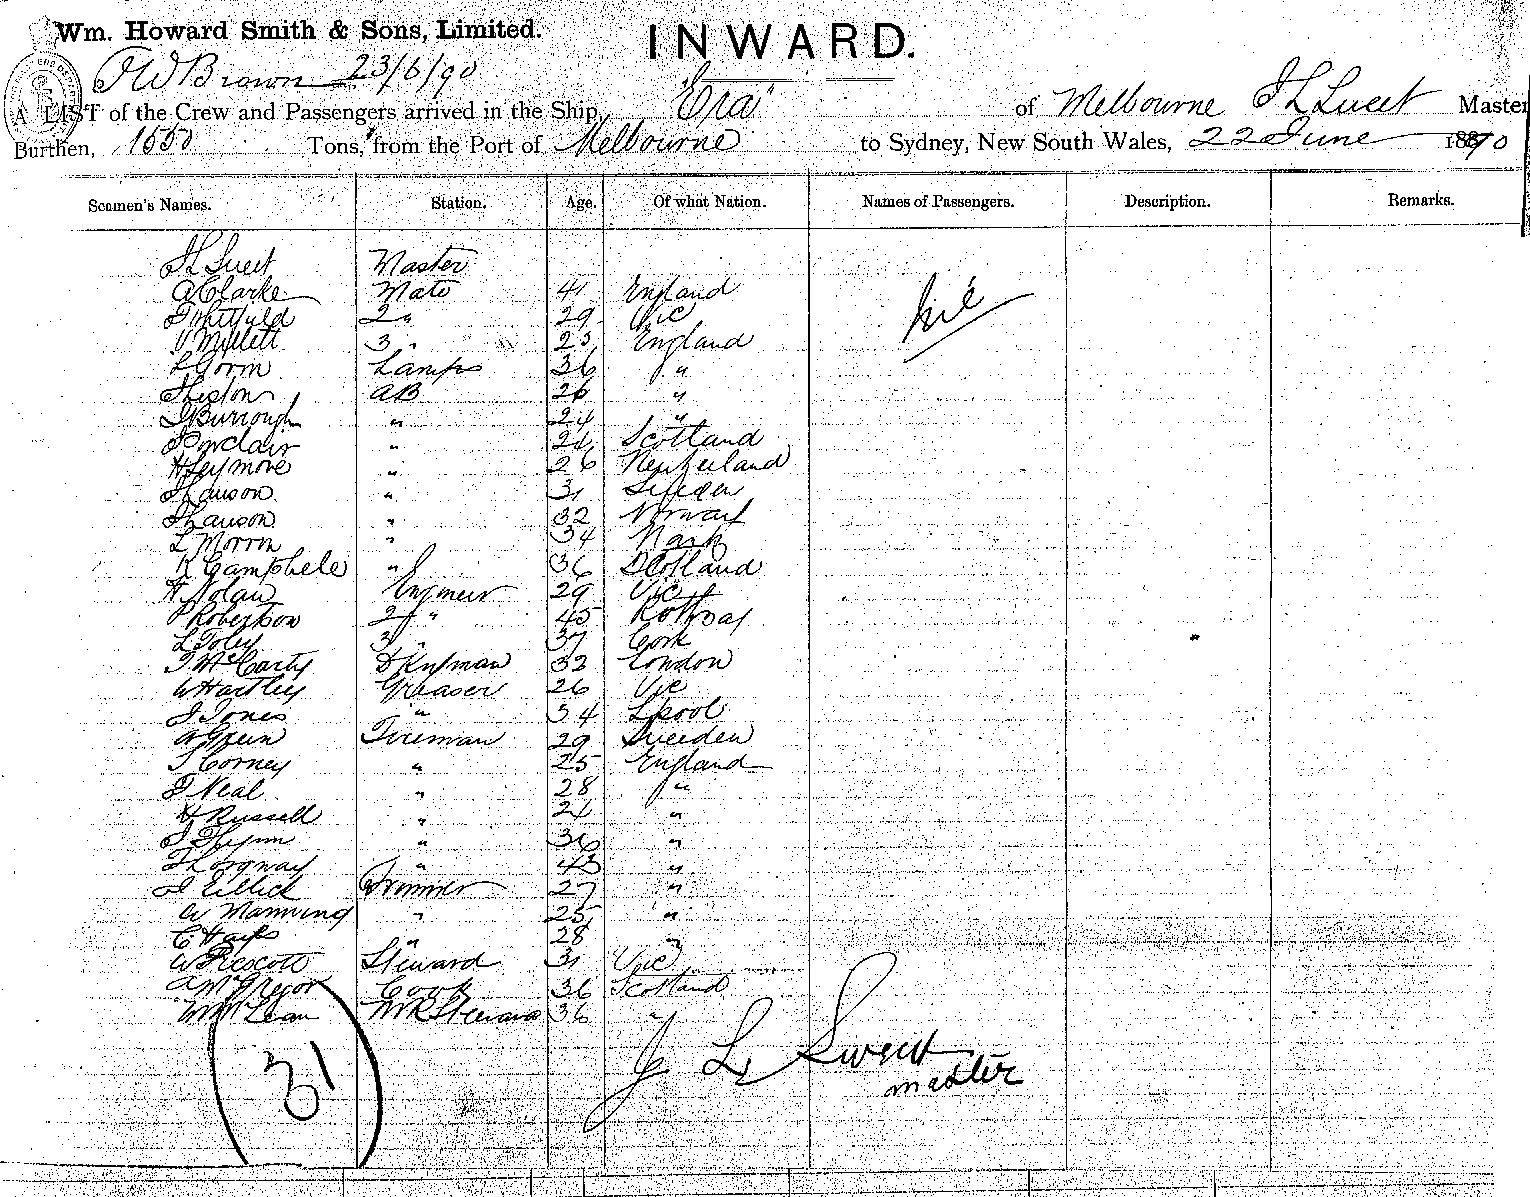 Wm. Howard Smith & Sons, Limited.
INWARD.
J W Brown 23/6/90
A LIST of the Crew and Passengers arrived in the Ship, "Era" of Melbourne J L Sweet Master
Burthen, 1550 Tons, from the Port of Melbourne to Sydney, New South Wales, 22 June 1890
Seamen's Names. Station. Age. Of what Nation. Names of Passengers. Description. Remarks.
J L Sweet Master
A Clarke Mate 41 England
2 " 29 Vic
V Millett 3 " 23 England
L Gorm Lamps 36 "
AB 26 "
J Burrough " 24 "
Sinclair " 24 Scotland
H Seymore " 26
" 31 Sweden
" 32 Norway
L Morron " 34
R Campbele " 36 Scotland
H Nolan Engineer 29 Vic
P Robertson 2 " 45 Rothsay
L Foley 3 " 37 Cork
J McCarty DKyman 32 London
W Hartley Greaser 26 Vic
J Jones " 34 Lpool
Green Fireman 29 Sweeden
J Corney " 25 England
J Neal " 28 "
H Russell " 24 "
J Flynn " 36 "
" 43 "
J Trimmer 27 "
W Manning " 25 "
C Hays " 28 "
W Prescott Steward 31 Vic
A McGregor Cook 36 Scotland
W McLean MR Steward 36 "
Nil
J L Sweet
master
31